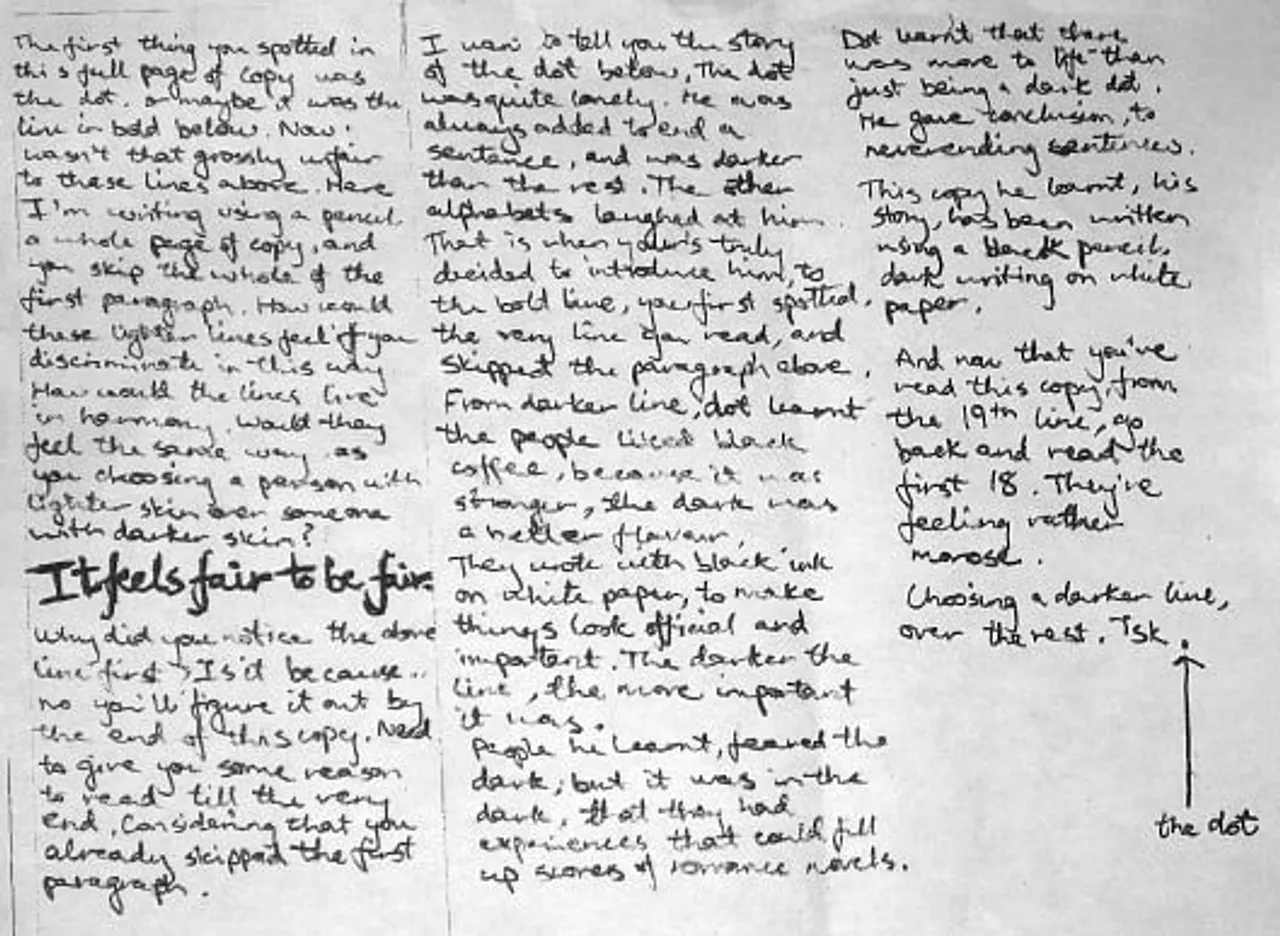 The first thing you spotted in
this full page of copy was
the dot. or maybe it was the
line in bold below. Now.
wasn't that grossly unfair
to these lines above. Here
I'm writing using a pencil.
a whole page of copy, and
you skip the whole of the
first paragraph. How would
these lighter lines feel if you
discriminate in this way
How would the lines live
in harmony. Would they
feel the same way as
you choosing a person with
lighter skin over someone
with darker skin?
It feels fair to be fair.
Why did you notice the above
line first? Is it because..
no you'll figure it out by
the end of this copy. Need
to give you some reason
to read till the very
end. Considering that you
already skipped the first
paragraph.
I want to tell you the story
of the dot below. The dot
was quite lonely. He was
always added to end a
sentence, and was darker
than the rest. The other
alphabets laughed at him.
That is when yours truly
decided to introduce him, to
the bold line, you first spotted.
the very line you read, and
skipped the paragraph above.
From darker line, dot learnt
the people liked black
coffee, because it was
stronger, the dark was
a better flavour.
They wrote with black ink
on white paper, to make
things look official and
important. The darker the
line, the more important
it was.
People he learnt, feared the
dark, but it was in the
dark, that they had
experiences that could fill
up scores of romance novels.
Dot learnt that there
was more to life than
just being a dark dot.
He gave conclusion, to
neverending sentences.
This copy he learnt, his
story, has been written
using a black pencil.
dark writing on white
paper.
And now that you've
read this copy, from
the 19th line, go
back and read the
first 18. They're
feeling rather
morose.
Choosing a darker line,
over the rest. Tsk.
the dot